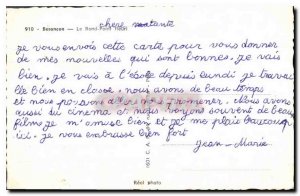 chere tante
910 - Besançon - Le Rond-Point
je vous envois cette carte pour vous donner
de mes nouvelles qui sont bonnes. je vais
bien. je vais à l'école depuis lundi je travail
lle bien en classe nous avons de beau temps
et nous pouvons nous promener. Nous avons
aussi du cinema et nous voyons souvent de beau
films je m'amuse bien et je me plais beaucoup
ici. je vous embrasse bien fort
Jean-Marie
Réel photo